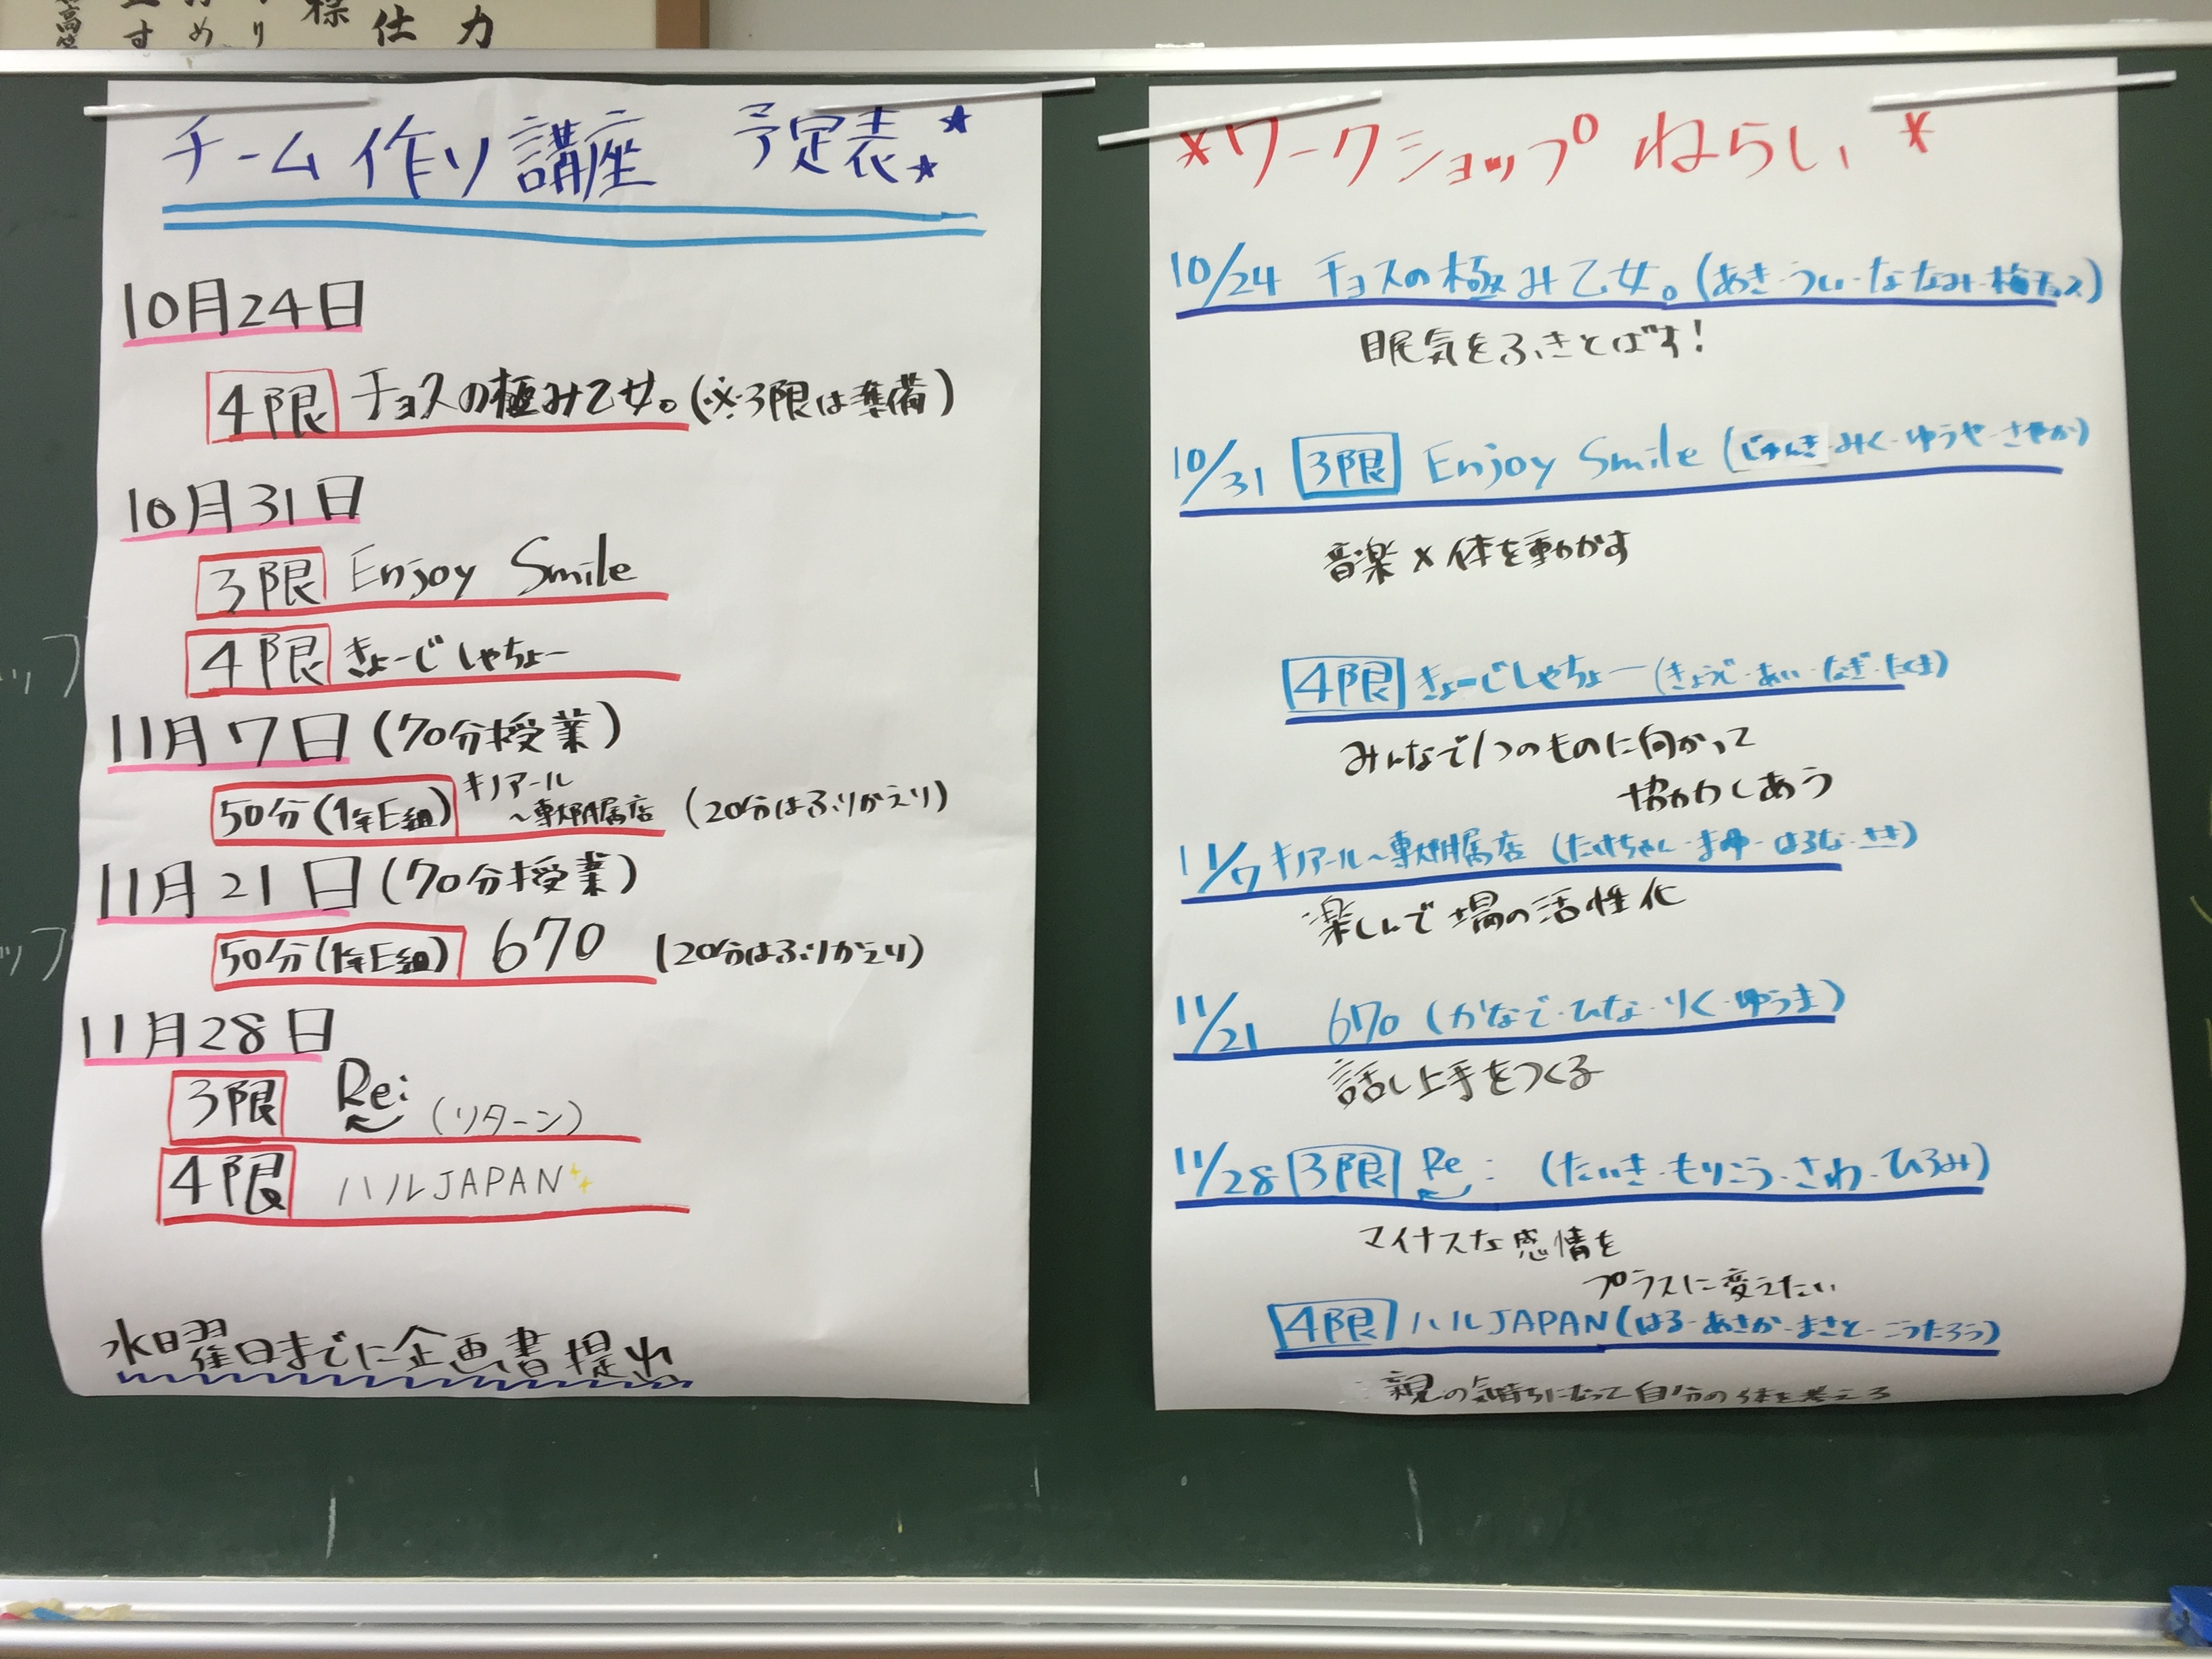 標
仕
力
チーム作り講座 予定表
10月24日
4限 チョスの極み乙女。(※3限は準備)
10月31日
3限 Enjoy Smile
4限 きょーじしゃちょー
11月7日(70分授業)
50分(1年E組) キノアール
～専大附属店 (20分はふりかえり)
11月21日(70分授業)
50分(1年E組) 670 (20分はふりかえり)
11月28日
3限 Re: (リターン)
4限 ハルJAPAN
水曜日までに企画書提出
*ワークショップ ねらい*
10/24 チョスの極み乙女。(あき・うい・ななみ・梅チョス)
眠気をふきとばす!
10/31 3限 Enjoy Smile (じゅんき・みく・ゆうや・さやか)
音楽×体を動かす
4限 きょーじしゃちょー(きょうじ・あい・なぎ・たくま)
みんなで1つのものに向かって
協力しあう
11/7 キノアール～専大附属店 (たけちゃん・まゆ・はるな・さき)
楽しんで場の活性化
11/21 670 (かなで・ひな・りく・ゆうま)
話し上手をつくる
11/28 3限 Re: (たいき・もりこう・さわ・ひろみ)
マイナスな感情を
プラスに変えたい
4限 ハルJAPAN(はる・あさか・まさと・こうたろう)
親の気持ちになって自分の体を考える